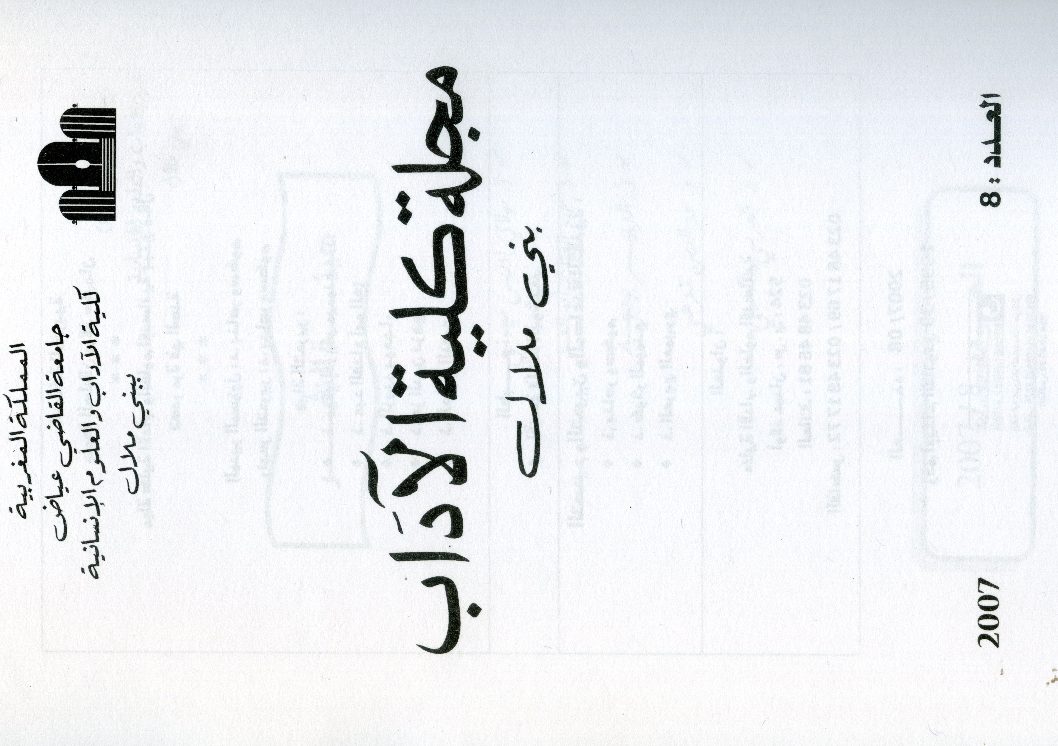 المملكة المغربية
جامعة القاضي عياض
كلية الآداب والعلوم الإنسانية
ببني ملال
مجلة كلية الآداب
بني ملال
العدد : 8
2007